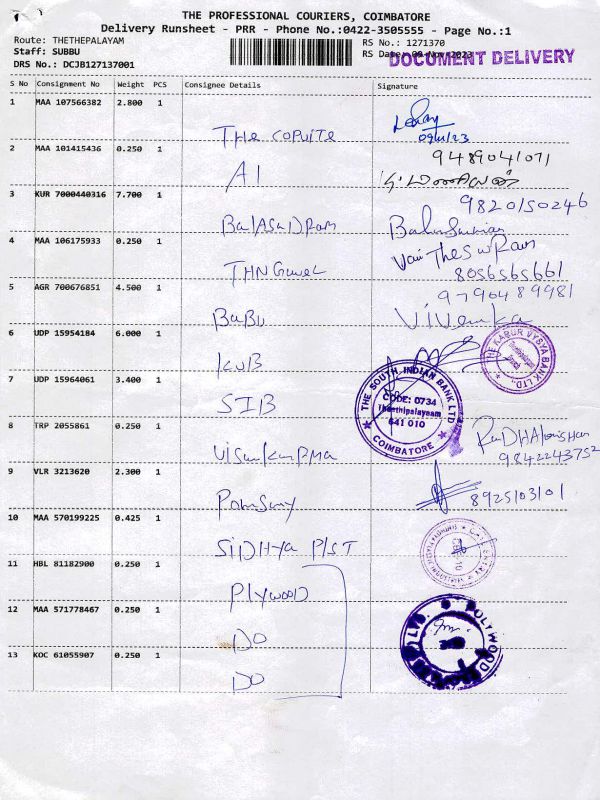 THE PROFESSIONAL COURIERS, COIMBATORE
Delivery Runsheet - PRR - Phone No.:0422-3505555 - Page No.:1
Route: THETHEPALAYAM
RS No.: 1271370
Staff: SUBBU
RS Date: 09 Nov 2023
DOCUMENT DELIVERY
DRS No.: DCJB127137001
S No Consignment No Weight PCS Consignee Details Signature
1 MAA 107566382 2.800 1
09/11/23
2 MAA 101415436 0.250 1
9489041071
AI
3 KUR 7000440316 7.700 1
9820150246
4 MAA 106175933 0.250 1
8056565661
5 AGR 700676851 4.500 1
9790489981
BaBU
6 UDP 15954184 6.000 1
KUB
THE KARUR VYSYA BANK LTD.
7 UDP 15964061 3.400 1
SIB
THE SOUTH INDIAN BANK LTD
CODE: 0734
Theethipalayam
641 010
COIMBATORE
8 TRP 2055861 0.250 1
9842243752
9 VLR 3213620 2.300 1
8925103101
10 MAA 570199225 0.425 1
SIDHYA P/ST
11 HBL 81182900 0.250 1
PLYWOOD
12 MAA 571778467 0.250 1
DO
13 KOC 61055907 0.250 1
DO